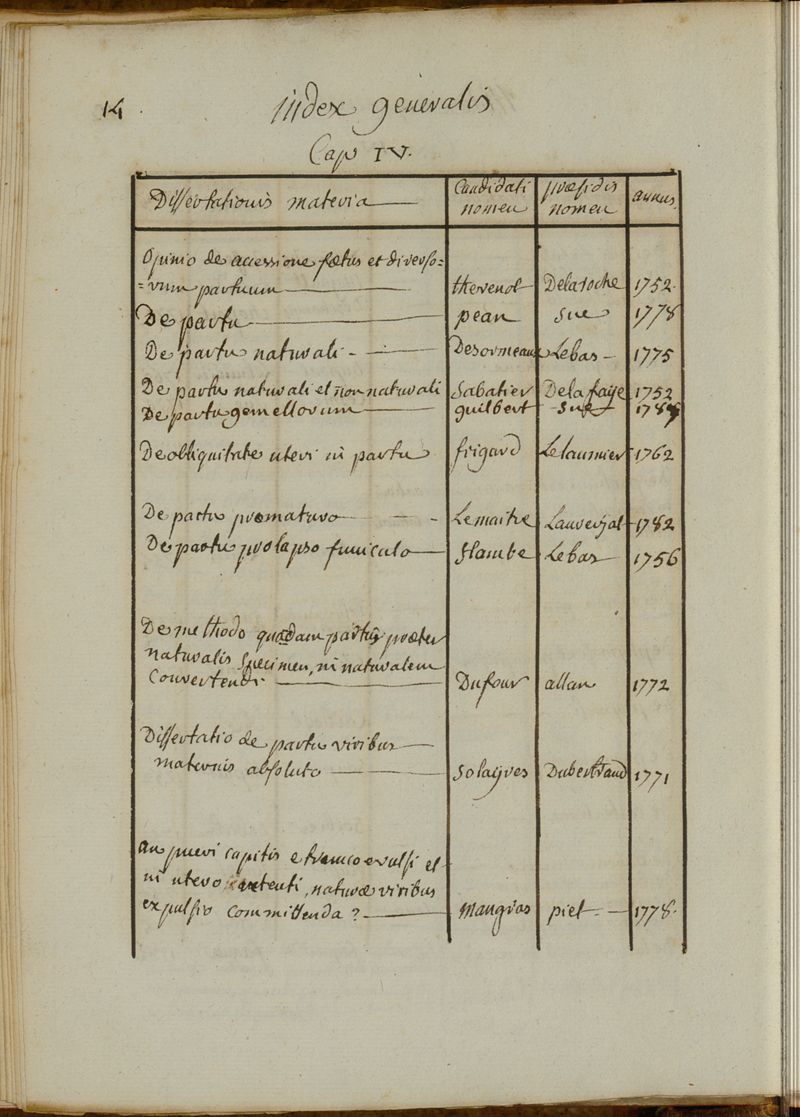 14.
index generalis
Cap IV.
Dissertationis materia
Candidati nomen
præsidis nomen
annus.
Opinio de accessione fœtus et diverso=
=rum partuum — thevenot Delaroche 1752.
De partu — pean sue 1778
De partu naturali - — Desormeaux Lebas - 1775
De partu naturali et non naturali Sabatier Delafaye 1752
De partu gemellorum — guilbert - sue
De obliquitate uteri in partu frigard Lelaumier 1762
De partu prematuro — - Lemaitre Lauverjat 1782
De partu prolapso funiculo — flambe Lebas 1756
De methodo quadam partus præter
naturalis specimen, in naturalem
Convertendi — Dufour allan 1772
Dissertatio de partu viribus —
maternis absoluto — Solayres Dubertrand 1771
an pueri capitis e trunco evulsi et
in utero retenti, naturæ viribus
expulsio Committenda ? — Mangras piet - — 1778.